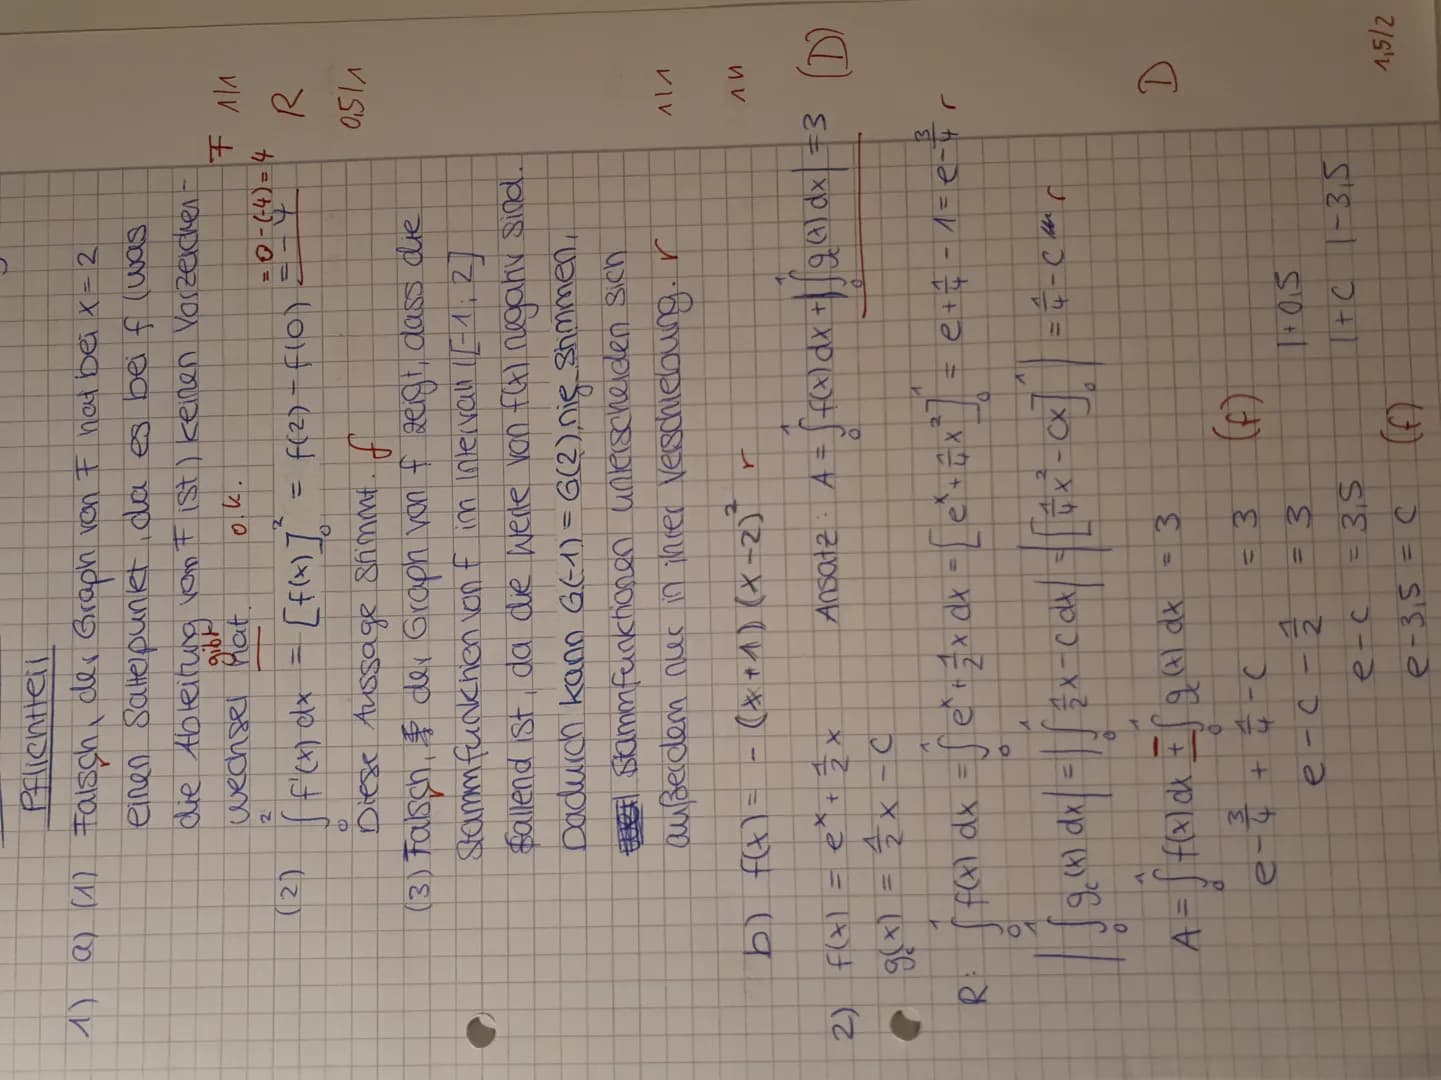 Pflichtteil
1) a) (1) Falsch, der Graph von F hat bei x = 2
einen Sattelpunkt, da es bei f (was
die Ableitung von F ist) keinen Vorzeichen- F
wechsel hat. gibt o.k. 1/1
(2) ∫₀² f'(x) dx = [f(x)]₀² = f(2) - f(0) = -4 = 0-(-4) = 4 R
Diese Aussage stimmt. f 0,5/1
(3) Falsch, der Graph von f zeigt, dass die
Stammfunktion von f im Intervall [-1; 2]
fallend ist, da die Werte von f(x) negativ sind.
Dadurch kann G(-1) = G(2) nie stimmen,
Stammfunktionen unterscheiden sich
außerdem nur in ihrer Verschiebung. r 1/1
b) f(x) = -(x+1)(x-2)² r 1/1
2) f(x) = eˣ + 1/2 x Ansatz: A = ∫₀¹ f(x) dx + |∫₀¹ g(x) dx| = 3 (D)
g_c(x) = 1/2 x - c
R: ∫₀¹ f(x) dx = ∫₀¹ eˣ + 1/2 x dx = [eˣ + 1/4 x²]₀¹ = e + 1/4 - 1 = e - 3/4 r
|∫₀¹ g_c(x) dx| = |∫₀¹ 1/2 x - c dx| = |[1/4 x² - cx]₀¹| = 1/4 - c r
A = ∫₀¹ f(x) dx + ∫₀¹ g_c(x) dx = 3 D
e - 3/4 + 1/4 - c = 3 (f)
e - c - 1/2 = 3 |+0,5
e - c = 3,5 |+c |-3,5
e - 3,5 = c (f) 1,5/2